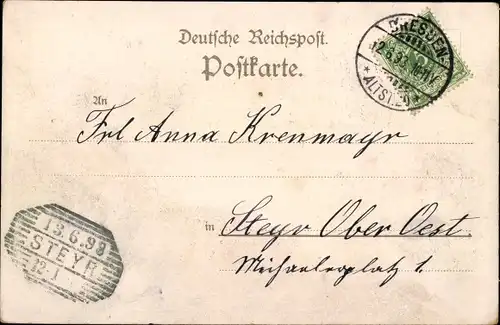 Deutsche Reichspost.
Postkarte.
DRESDEN
12.6.98
* ALTST.
An
Frl Anna Krenmayr
in
Steyr Ober Oest
Michaelerplatz 1.
13.6.98
STEYR
12-1